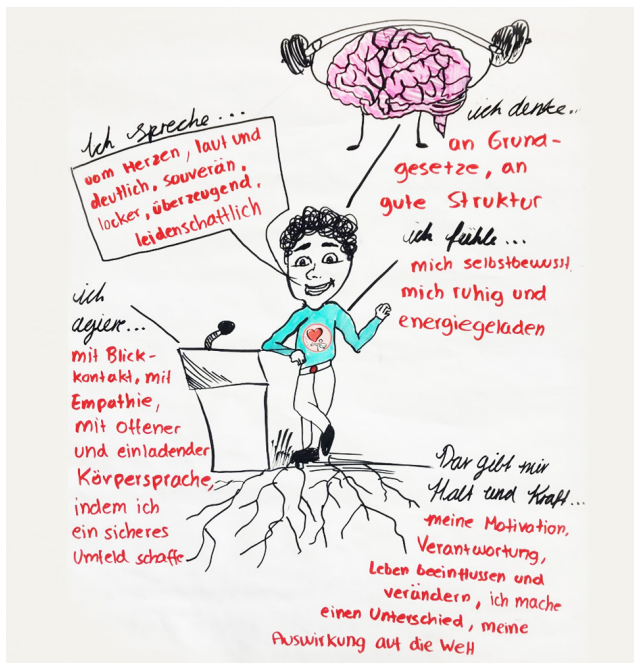 Ich spreche...
vom Herzen, laut und
deutlich, souverän,
locker, überzeugend,
leidenschaftlich
ich denke...
an Grund-
gesetze, an
gute Struktur
ich fühle...
mich selbstbewusst,
mich ruhig und
energiegeladen
ich
agiere...
mit Blick-
kontakt, mit
Empathie,
mit offener
und einladender
Körpersprache,
indem ich
ein sicheres
Umfeld schaffe
Das gibt mir
Halt und Kraft...
meine Motivation,
Verantwortung,
Leben beeinflussen und
verändern, ich mache
einen Unterschied, meine
Auswirkung auf die Welt